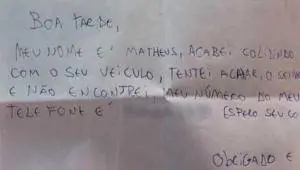 BOA TARDE,
MEU NOME É MATHEUS, ACABEI COLIDINDO
COM O SEU VEÍCULO, TENTEI ACHAR, O SENH
E NÃO ENCONTREI, MEU NÚMERO DO MEU
TELEFONE É ESPERO SEU CO
OBRIGADO E